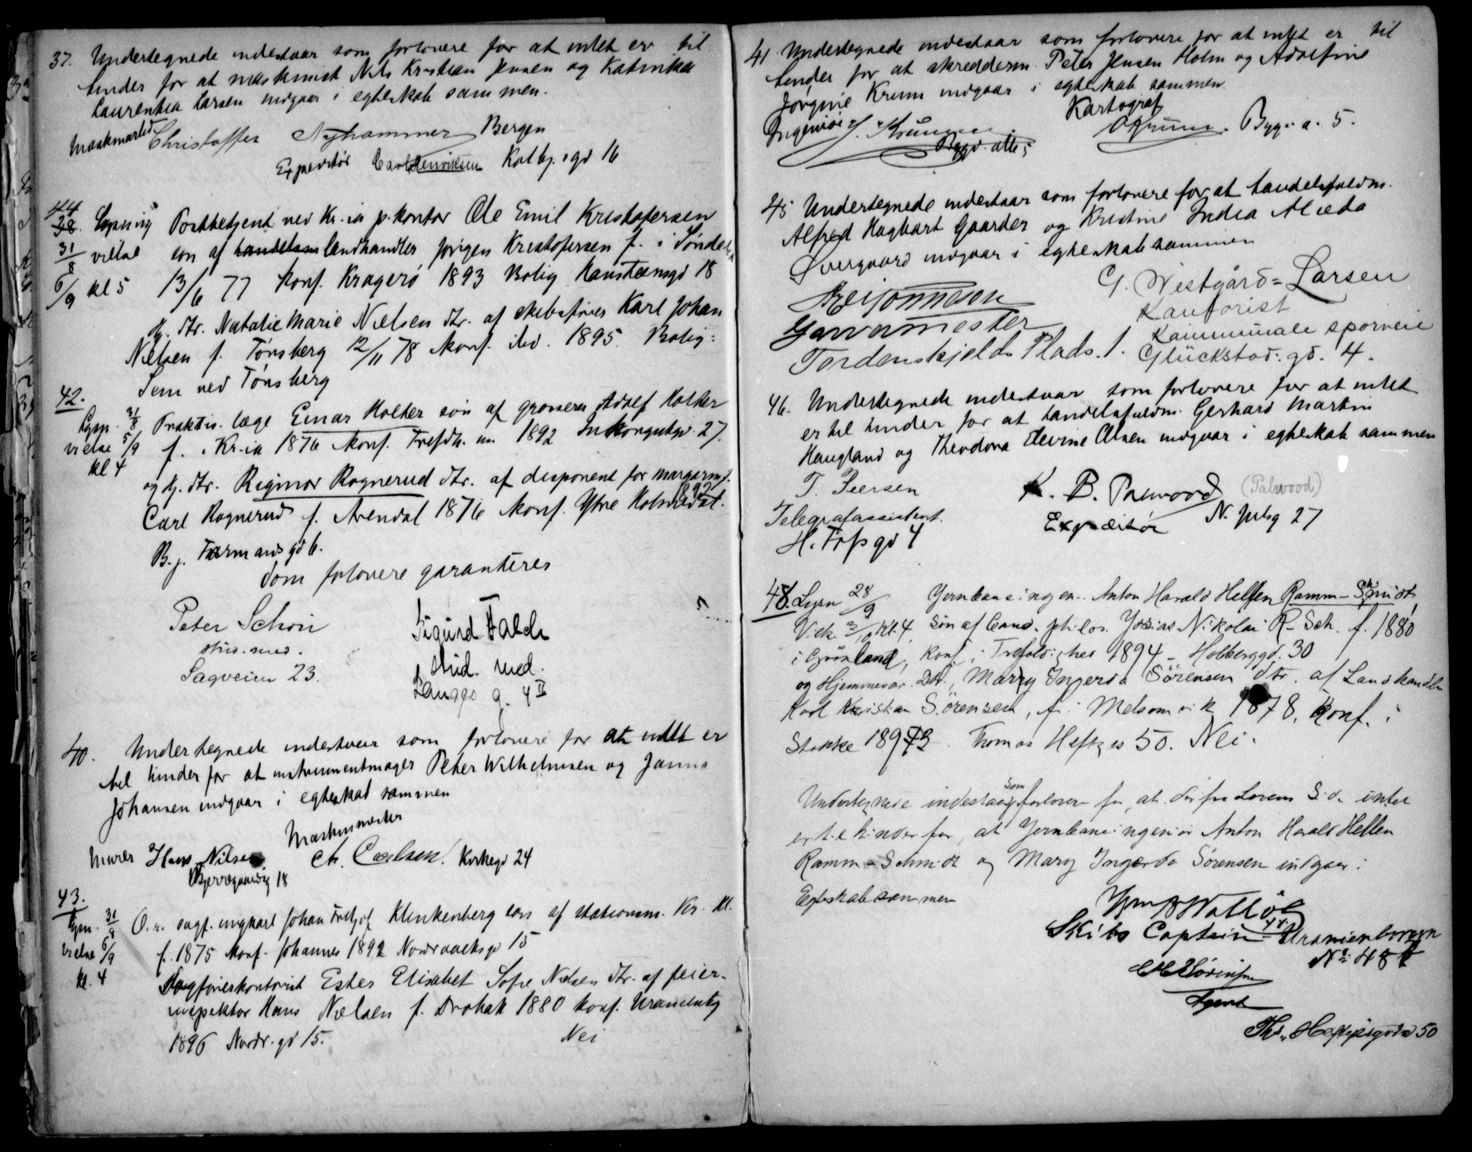 37. Undertegnede indestaar som forlovere for at intet er til
hinder for at maskinist Nils Kristian Jensen og Katinka
Laurentia Larsen indgaar i egteskab sammen.
Christoffer Nyhammer Bergen
Expeditør Carl Henriksen 16
44
38. Lysning Postbetjent ved Kr.ia p.kontor Ole Emil Kristofersen
31/8 vielse søn af landhandler Jørgen Kristofersen f. i
6/9 kl 5 13/6 77 konf. Kragerø 1893 Bolig Hansteensgd 18
og dtr. Natalie Marie Nielsen dtr. af skibsfører Karl Johan
Nielsen f. Tønsberg 12/11 78 konf. ibd. 1895. Bolig:
Sem ved Tønsberg
42.
Lysn. 31/8 Praktis. læge Einar Holter søn af grosserer Adolf Holter
vielse 5/9 f. i Kr.ia 1876 konf. Trefdh. 1892 Inkognitogd 27.
kl 4
og dtr. Rigmor Rognerud dtr. af disponent for
Carl Rognerud f. Arendal 1876 konf. Ytre Holmedal 1892.
B. f. Tormods gd 6.
Som forlovere garanteres
Peter Schou Sigurd Falch
stud. med. stud. med.
Sagveien 23. Langes g. 4 II
40. Undertegnede indestaar som forlovere for at intet er
til hinder for at instrumentmager Peter Wilhelmsen og Janna
Johansen indgaar i egteskab sammen
Maskinmester
Murer Hans Nilsen Chr. Carlsen. Kirkegd 24
18
43.
Lysn. 31/8 O.r. sagf. ungkarl Johan Fredjof Klinkenberg søn af stationsm. Kr. Kl.
vielse 6/9 f. 1875 konf. Johannes 1892 Nordraaksgd 15
kl. 4 Sagførerkontorist Ester Elisabet Sofie Nielsen dtr. af feier-
inspektør Hans Nielsen f. Drøbak 1880 konf. Uranienbg
1896 Nordr. gd 15. Nei
41 Undertegnede indestaar som forlovere for at intet er til
hinder for at skrædderm. Peter Jensen Holm og Adolfine
Jørgine Krum indgaar i egteskab sammen.
Kartograf
Ingeniør J. Krumm. O Krumm. Bygd. a. 5.
Bygd. alle 5
45 Undertegnede indestaar som forlovere for at handelsfuldm.
Alfred Hagbart Gaarder og Kristine India Alieda
Overgaard indgaar i egteskab sammen
G. Westgård=Larsen
Kontorist
Garvermester Kommunale sporveie
Tordenskjolds Plads. 1. Glückstad. gd. 4.
46. Undertegnede indestaar som forlovere for at intet
er til hinder for at handelsfuldm. Gerhard Martin
Haugland og Theodora Olsen indgaar i egteskab sammen
T. Iversen K. B. Palwood (Palwood)
Telegrafassistent. Expeditør N. Jusbg 27
H. Trfsgd 4
48. Lysn 28/9 Jernbaneingen. Anton Harald Helfen Ramm-Schmidt,
Viels 3/10 kl 4, søn af Cand. philos. Josias Nikolai R. Sch. f. 1880
i Grønland, konf. i Trefoldighed 1894 - Holberggd. 30
og Hjemmevær. dtr, Marry Ingerda Sörensen dtr. af Landhandler
Karl Kristian Sörensen, f. i Melsomvik 1878. konf. i
Stokke 1893. Thomas Heftyes 50. Nei.
Undertegnede indestaar som forlovere for, at der fra Lovens Side intet
er til hinder for, at Jernbaneingeniør Anton Harald Helfen
Ramm-Schmidt og Mary Ingerda Sörensen indgaar i
Egteskab sammen
Skibs Captein Uranienborgvn
No 48
Agent
Th. Heftyesgade 50